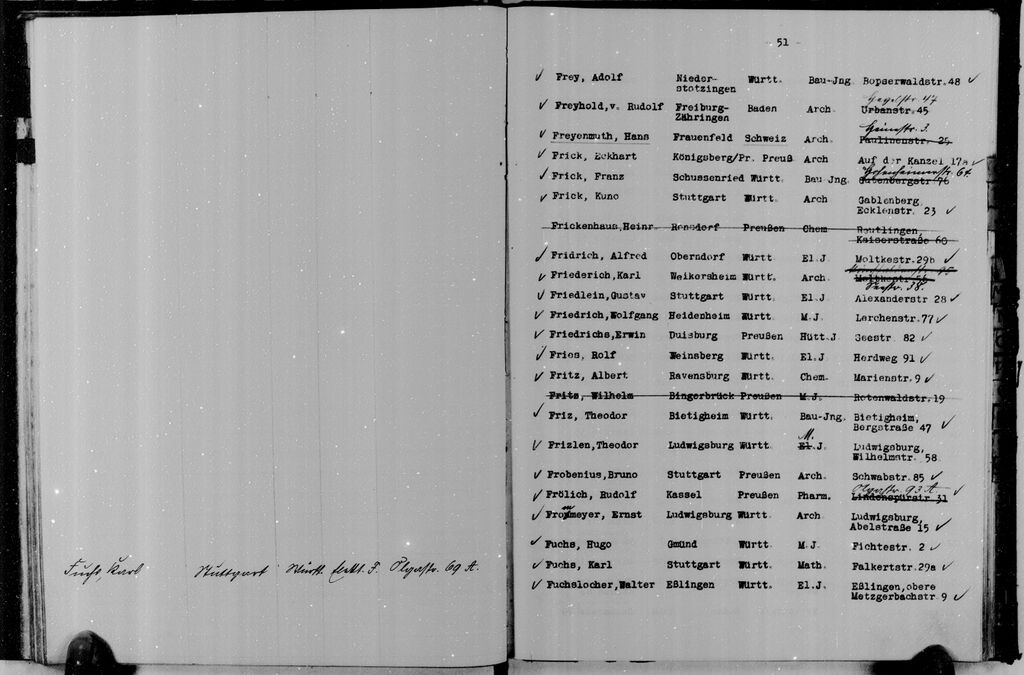 Fuchs, Karl Stuttgart Württ. Elekt. J. Olgastr. 69 A.
- 51 -
✓ Frey, Adolf Nieder- Württ. Bau-Jng. Bopserwaldstr. 48 ✓
stotzingen
Hegelstr. 47
✓ Freyhold, v. Rudolf Freiburg- Baden Arch. Urbanstr. 45
Zähringen
Heinestr. 3.
✓ Freyenmuth, Hans Frauenfeld Schweiz Arch. Paulinenstr.
✓ Frick, Eckhart Königsberg/Pr. Preuß Arch Auf der Kanzel 17a ✓
64
✓ Frick, Franz Schussenried Württ. Bau Jng. Gutenbergstr
✓ Frick, Kuno Stuttgart Württ. Arch Gablenberg,
Ecklenstr. 23 ✓
Frickenhaus, Heinr. Ronsdorf Preußen Chem Reutlingen,
Kaiserstraße 60
✓ Fridrich, Alfred Oberndorf Württ El.J. Moltkestr. 29b ✓
✓ Friederich, Karl Weikersheim Württ. Arch. Moltkestr
Seestr. 38.
✓ Friedlein, Gustav Stuttgart Württ. El.J Alexanderstr 28 ✓
✓ Friedrich, Wolfgang Heidenheim Württ. M.J. Lerchenstr. 77 ✓
✓ Friedrichs, Erwin Duisburg Preußen Hütt.J Seestr. 82 ✓
✓ Fries, Rolf Weinsberg Württ. El.J Herdweg 91 ✓
✓ Fritz, Albert Ravensburg Württ. Chem. Marienstr. 9 ✓
Fritz, Wilhelm Bingerbrück Preußen M.J. Rotenwaldstr. 19
✓ Friz, Theodor Bietigheim Württ. Bau-Jng. Bietigheim,
Bergstraße 47 ✓
M.
✓ Frizlen, Theodor Ludwigsburg Württ El.J. Ludwigsburg,
Wilhelmstr. 58.
✓ Frobenius, Bruno Stuttgart Preußen Arch. Schwabstr. 85 ✓
Olgastr. 93 A ✓
✓ Frölich, Rudolf Kassel Preußen Pharm. Lindenspürstr. 31
✓ Frommeyer, Ernst Ludwigsburg Württ. Arch Ludwigsburg,
Abelstraße 15 ✓
✓ Fuchs, Hugo Gmünd Württ. M.J. Fichtestr. 2 ✓
✓ Fuchs, Karl Stuttgart Württ. Math. Falkertstr. 29a ✓
✓ Fuchslocher, Walter Eßlingen Württ. El.J. Eßlingen, obere
Metzgerbachstr. 9 ✓